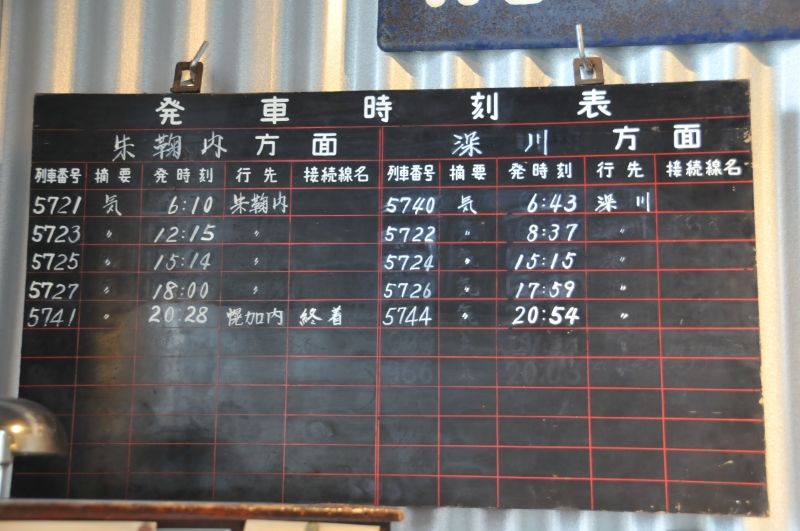 発車時刻表
朱鞠内方面 深川方面
列車番号 摘要 発時刻 行先 接続線名 列車番号 摘要 発時刻 行先 接続線名
5721 気 6:10 朱鞠内 5740 気 6:43 深川
5723 〃 12:15 〃 5722 〃 8:37 〃
5725 〃 15:14 〃 5724 〃 15:15 〃
5727 〃 18:00 〃 5726 〃 17:59 〃
5741 〃 20:28 幌加内 終着 5744 〃 20:54 〃